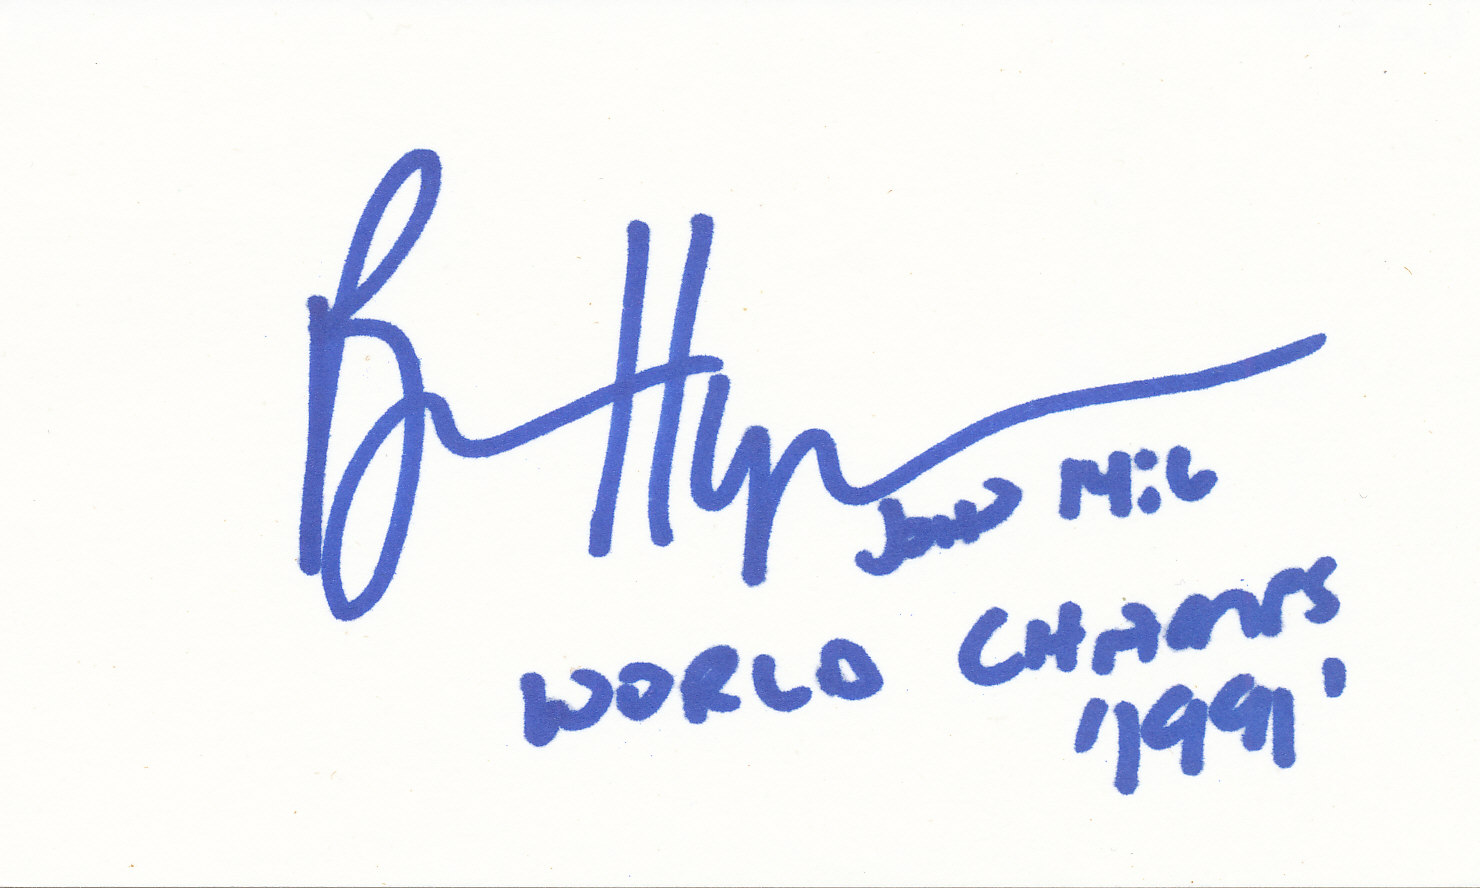 John 14:6
WORLD CHAMPS
'1991'